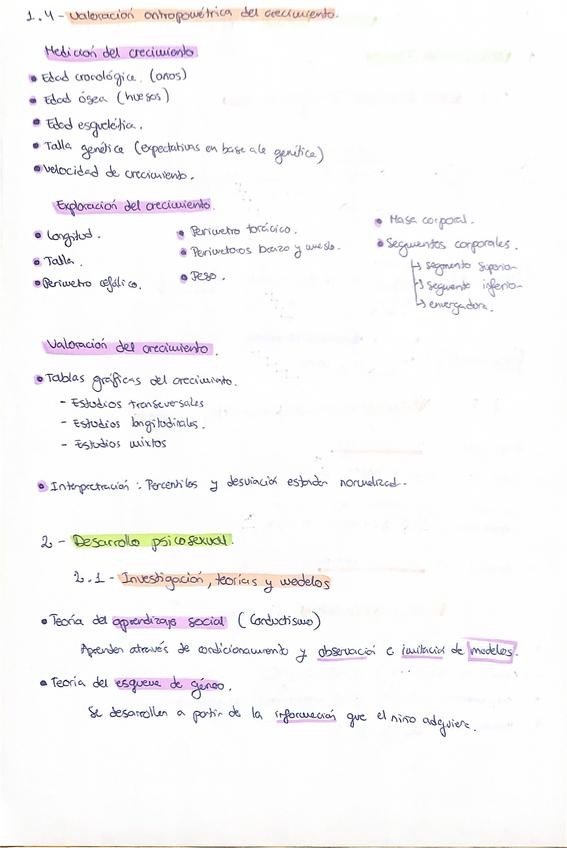 1.4 - Valoración antropométrica del crecimiento.
Medición del crecimiento
• Edad cronológica. (años)
• Edad ósea (huesos)
• Edad esquelética.
• Talla genética (expectativas en base a la genética)
• Velocidad de crecimiento.
Exploración del crecimiento.
• Longitud.
• Talla.
• Perímetro cefálico.
• Perímetro torácico.
• Perímetros brazo y muslo.
• Peso.
• Masa corporal.
• Segmentos corporales.
↳ segmento superior
↳ segmento inferior
↳ envergadura.
Valoración del crecimiento.
• Tablas gráficas del crecimiento.
- Estudios transversales
- Estudios longitudinales.
- Estudios mixtos
• Interpretación: Percentiles y desviación estándar normalizad-
2 - Desarrollo psicosexual.
2.1 - Investigación, teorías y modelos
• Teoría del aprendizaje social (Conductismo)
Aprenden através de condicionamiento y observación e imitación de modelos.
• Teoría del esquema de género.
Se desarrollan a partir de la información que el niño adquiere.